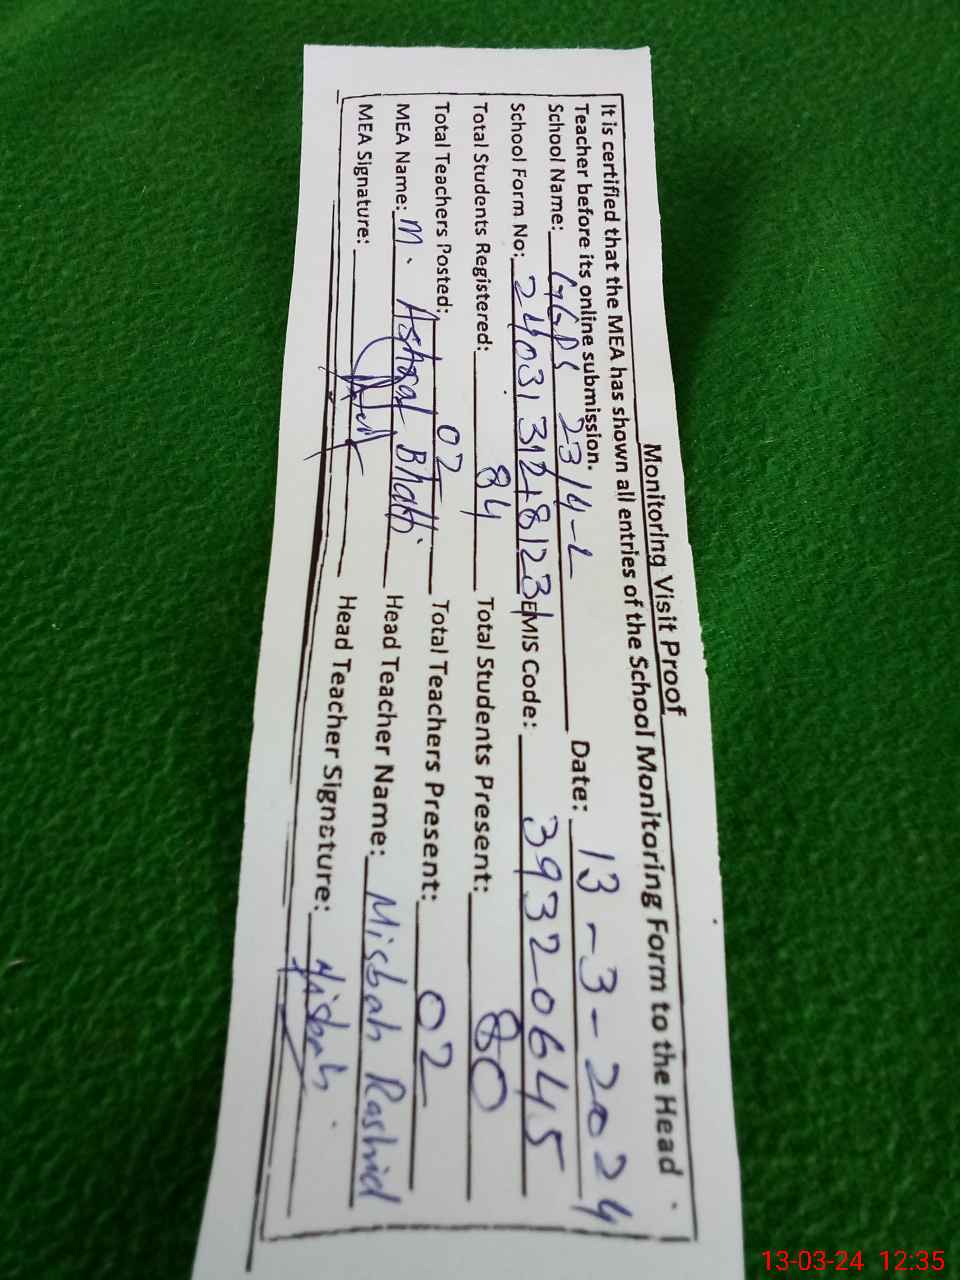 Monitoring Visit Proof
It is certified that the MEA has shown all entries of the School Monitoring Form to the Head
Teacher before its online submission.
School Name: GGPS 23/4-L Date: 13-3-2024
School Form No: 2403131218123 EMIS Code: 39320645
Total Students Registered: 84 Total Students Present: 80
Total Teachers Posted: 02 Total Teachers Present: 02
MEA Name: M. Bhatti Head Teacher Name: Misbah Rashid
MEA Signature: Head Teacher Signature: Misbah
13-03-24 12:35